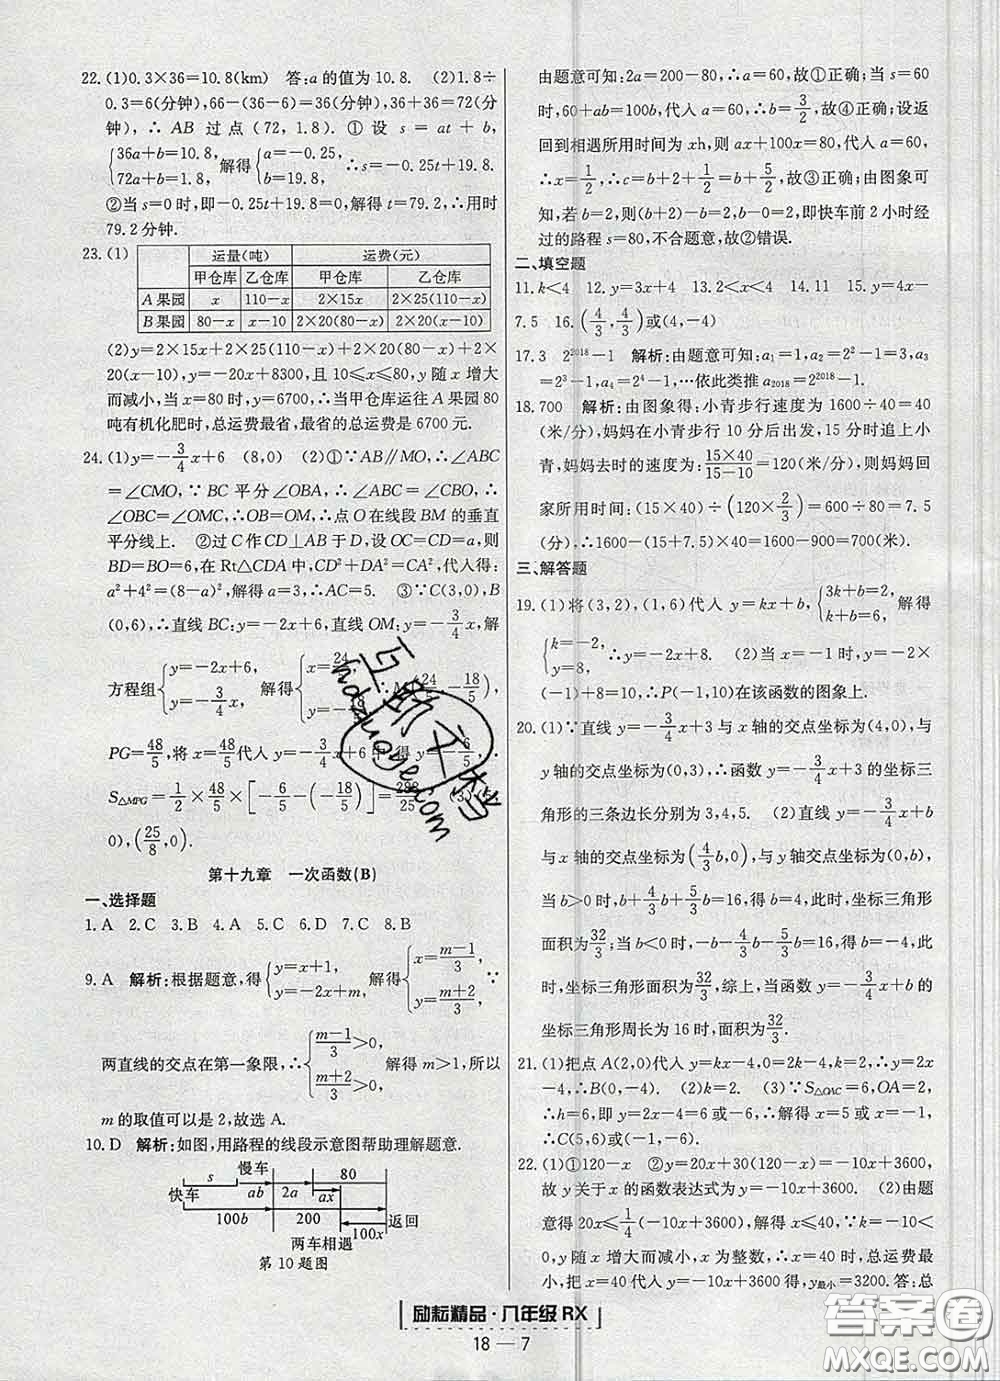 22. (1)0.3×36=10.8(km) 答:a 的值为 10.8. (2)1.8÷
0.3=6(分钟),66-(36-6)=36(分钟),36+36=72(分
钟),∴AB 过点(72,1.8). ① 设 s=at+b,
{36a+b=10.8, 72a+b=1.8, 解得{a=-0.25, b=19.8. ∴s=-0.25t+19.8.
②当 s=0 时,即-0.25t+19.8=0,解得 t=79.2,∴用时
79.2 分钟.
23. (1)
运量(吨) 运费(元)
甲仓库 乙仓库 甲仓库 乙仓库
A 果园 x 110-x 2×15x 2×25(110-x)
B 果园 80-x x-10 2×20(80-x) 2×20(x-10)
(2)y=2×15x+2×25(110-x)+2×20(80-x)+2×
20(x-10),y=-20x+8300,且 10≤x≤80,y 随 x 增大
而减小,当 x=80 时,y=6700,∴当甲仓库运往 A 果园 80
吨有机化肥时,总运费最省,最省的总运费是 6700 元.
24. (1)y=-3/4x+6 (8,0) (2)①∵AB∥MO,∴∠ABC
=∠CMO,∵BC 平分∠OBA,∴∠ABC=∠CBO,∴
∠OBC=∠OMC,∴OB=OM,∴点 O 在线段 BM 的垂直
平分线上. ②过 C 作 CD⊥AB 于 D,设 OC=CD=a,则
BD=BO=6,在 Rt△CDA 中,CD²+DA²=CA²,代入得:
a²+4²=(8-a)²,解得 a=3,∴AC=5. ③∵C(3,0),B
(0,6),∴直线 BC:y=-2x+6,直线 OM:y=-3/4x,解
方程组{y=-2x+6, y=-3/4x, 解得{x=24/ y=-18/ 24/5,-18/5),
PG=48/5,将 x=48/5代入 y=-3/4x+6 中,得 y=-6/5,∴
S△MPG=1/2×48/5×[-6/5-(-18/5)]=288/25.
0),(25/8,0).
第十九章 一次函数(B)
一、选择题
1. A 2. C 3. B 4. C 5. B 6. D 7. C 8. B
9. A 解析:根据题意,得{y=x+1, y=-2x+m, 解得{x=(m-1)/3, y=(m+2)/3. ∵
两直线的交点在第一象限,∴{(m-1)/3>0, (m+2)/3>0, 解得 m>1,所以
m 的取值可以是 2,故选 A.
10. D 解析:如图,用路程的线段示意图帮助理解题意.
s 慢车 80
快车 ab 2a ax
100b 200 100x 返回
两车相遇
第 10 题图
由题意可知:2a=200-80,∴a=60,故①正确;当 s=60
时,60+ab=100b,代入 a=60,∴b=3/2,故④正确;设返
回到相遇所用时间为 xh,则 ax+100x=80,代入 a=60,
∴x=1/2,∴c=b+2+1/2=b+5/2,故③正确;由图象可
知,若 b=2,则(b+2)-b=2,b-0=2,即快车前 2 小时经
过的路程 s=80,不合题意,故②错误.
二、填空题
11. k<4 12. y=3x+4 13. 2<x<4 14. 11 15. y=4x-
7.5 16. (4/3,4/3)或(4,-4)
17. 3 2²⁰¹⁸-1 解析:由题意可知:a₁=1,a₂=2²-1=3,a₃
=2³-1,a₄=2⁴-1,…依此类推 a₂₀₁₈=2²⁰¹⁸-1.
18. 700 解析:由图象得:小青步行速度为 1600÷40=40
(米/分),妈妈在小青步行 10 分后出发,15 分时追上小
青,妈妈去时的速度为:(15×40)/(15-10)=120(米/分),则妈妈回
家所用时间:(15×40)÷(120×2/3)=600÷80=7.5
(分),∴1600-(15+7.5)×40=1600-900=700(米).
三、解答题
19. (1)将(3,2),(1,6)代入 y=kx+b,{3k+b=2, k+b=6, 解得
{k=-2, y=8, ∴y=-2x+8. (2)当 x=-1 时,y=-2×
(-1)+8=10,∴P(-1,10)在该函数的图象上.
20. (1)∵直线 y=-3/4x+3 与 x 轴的交点坐标为(4,0),与
y 轴的交点坐标为(0,3),∴函数 y=-3/4x+3 的坐标三
角形的三条边长分别为 3,4,5. (2)直线 y=-3/4x+b
与 x 轴的交点坐标为(4/3b,0),与 y 轴交点坐标为(0,b),
当 b>0 时,b+4/3b+5/3b=16,得 b=4,此时,坐标三角形
面积为32/3;当 b<0 时,-b-4/3b-5/3b=16,得 b=-4,此
时,坐标三角形面积为32/3,综上,当函数 y=-3/4x+b 的
坐标三角形周长为 16 时,面积为32/3.
21. (1)把点 A(2,0)代入 y=kx-4,0=2k-4,∴y=2x
-4,∴B(0,-4). (2)k=2. (3)∵S△OAC=6,OA=2,
∴h=6,∴当 y=6 时,x=5;当 y=-6 时,x=-1,
∴C(5,6)或(-1,-6).
22. (1)①120-x ②y=20x+30(120-x)=-10x+3600,
故 y 关于 x 的函数表达式为 y=-10x+3600. (2)由题
意得 20x≤1/4(-10x+3600),解得 x≤40,∵k=-10<
0,y 随 x 增大而减小,x 为整数,∴x=40 时,总运费最
小,把 x=40 代入 y=-10x+3600 得,y最小=3200. 答:总
励耘精品·八年级 RX
18 — 7
互助文档
hdzuoye.com
答案圈
MXQE.COM